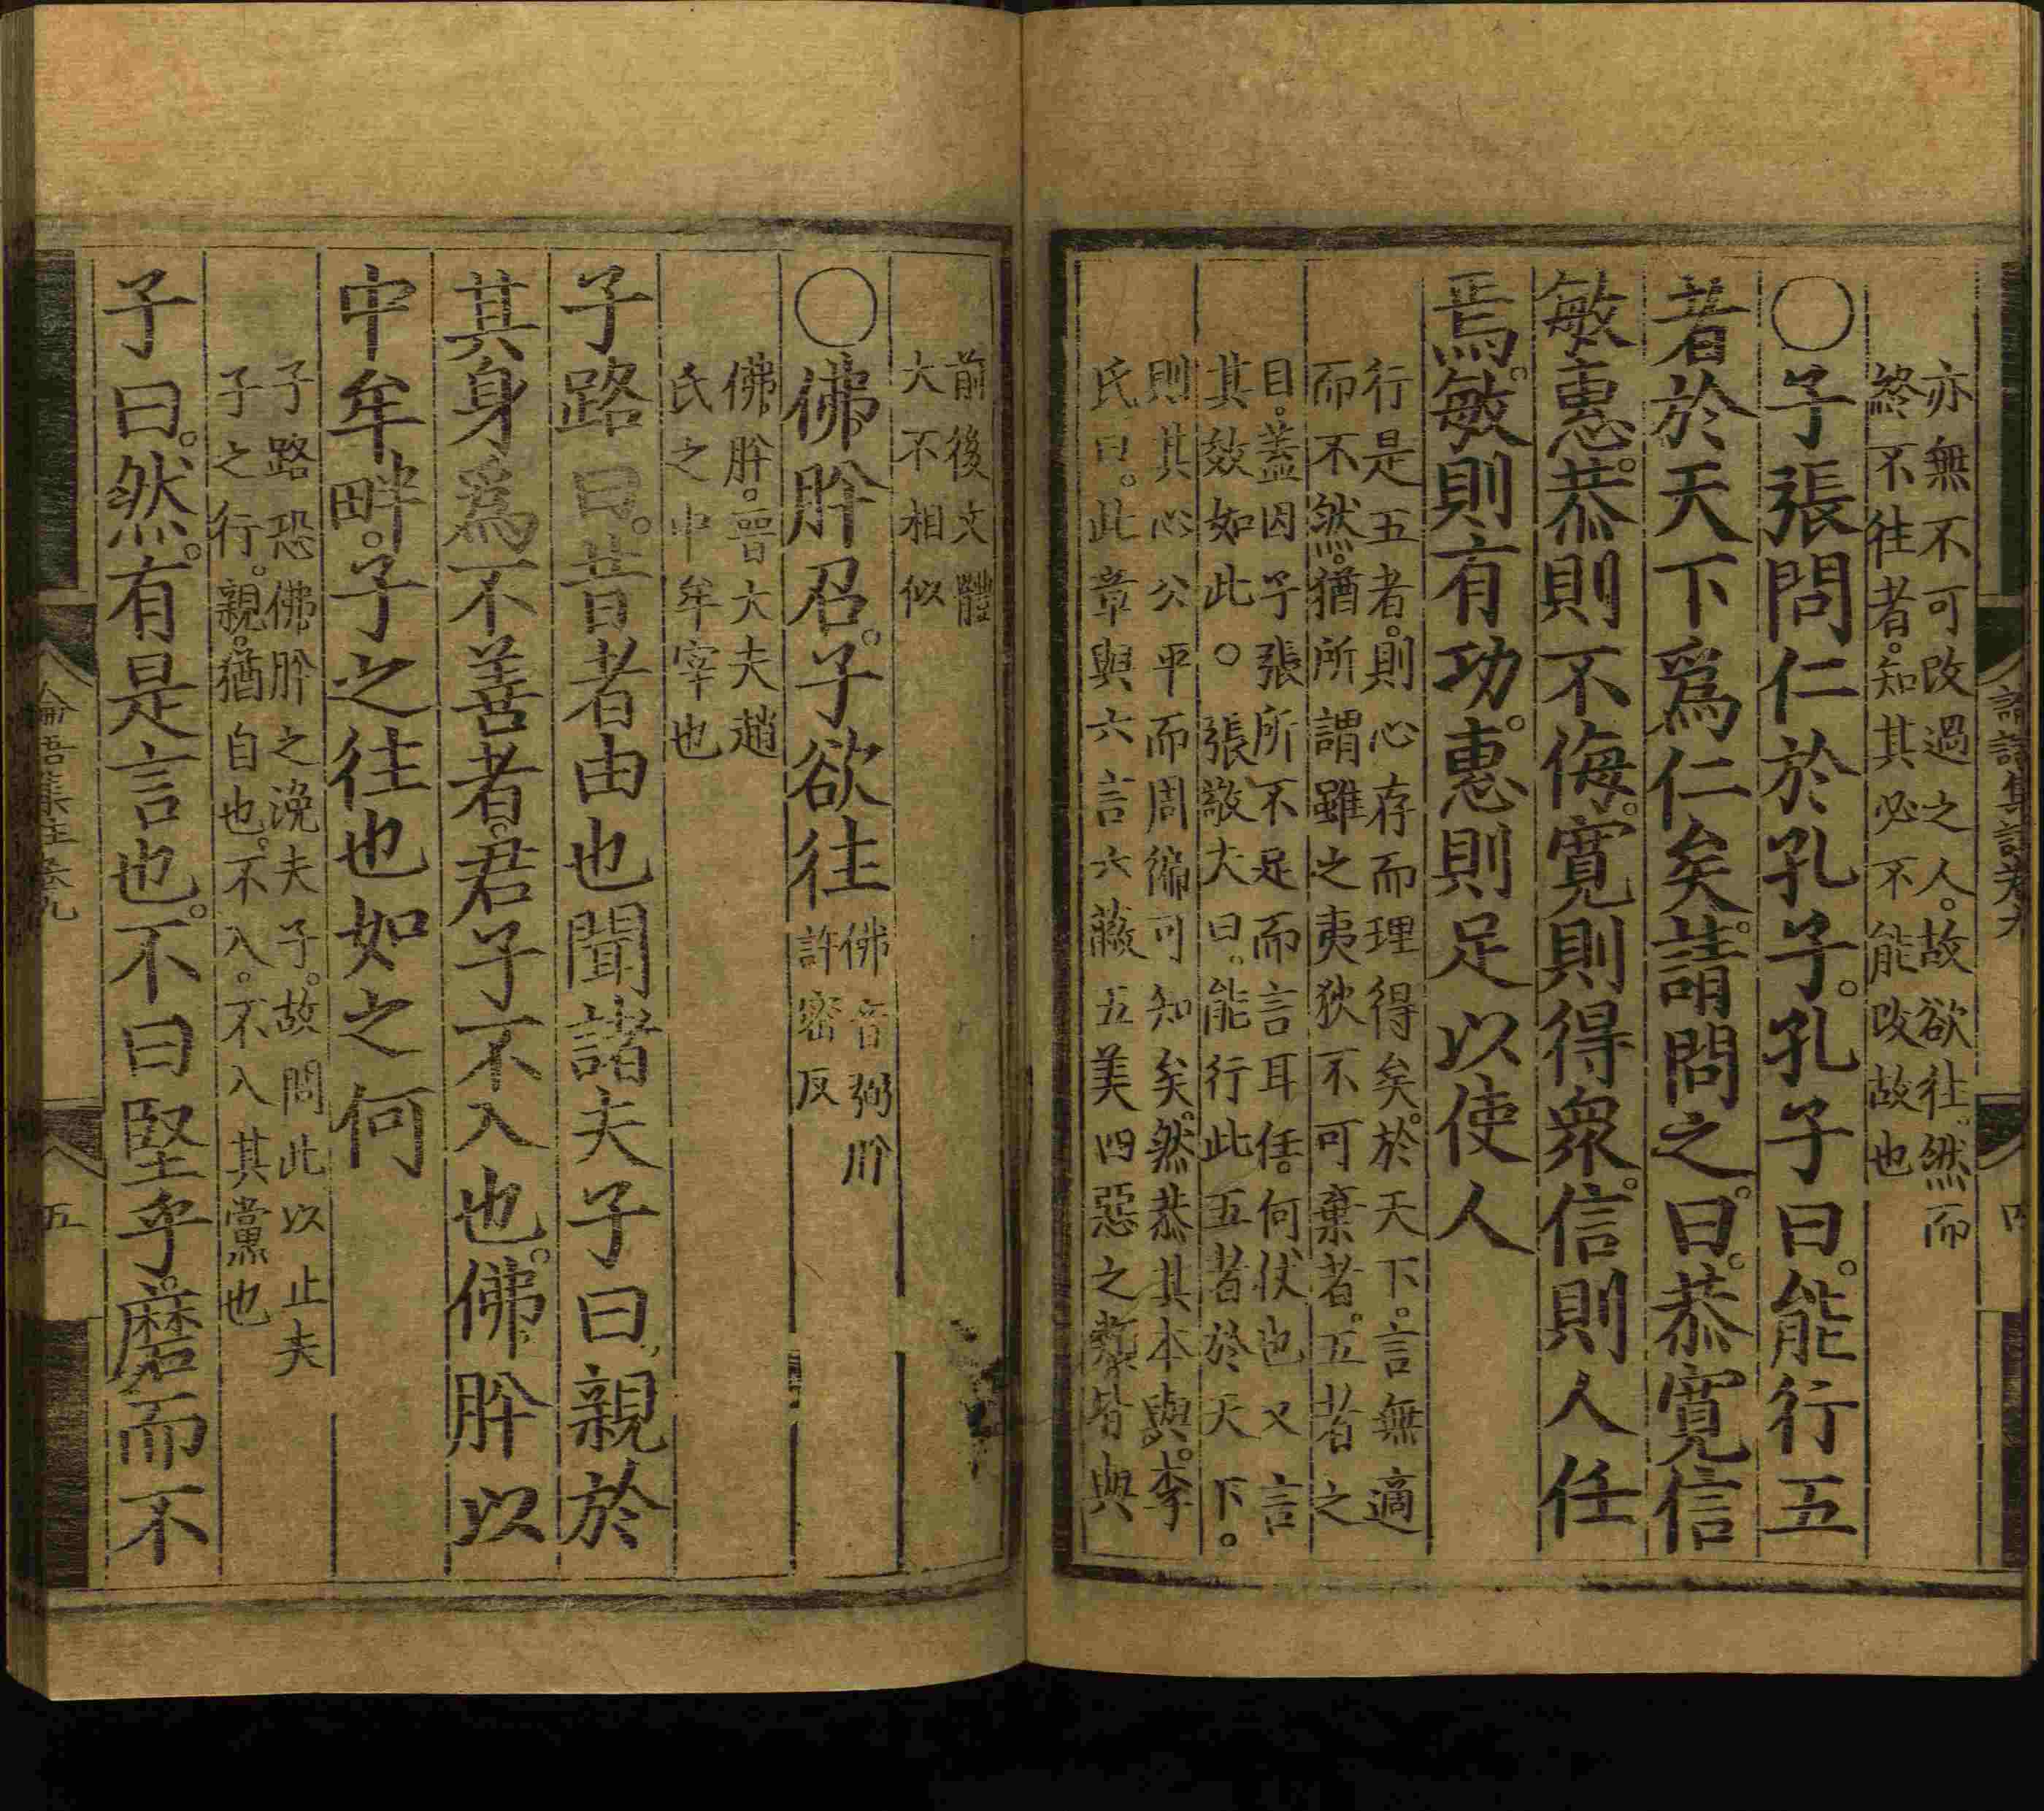 亦無不可改過之人。故欲往。然而
終不往者。知其必不能改故也
○子張問仁於孔子。孔子曰。能行五
者於天下爲仁矣。請問之。曰。恭寬信
敏惠。恭則不侮。寬則得衆。信則人任
焉。敏則有功。惠則足以使人
行是五者。則心存而理得矣。於天下。言無適
而不然。猶所謂雖之夷狄不可棄者。五者之
目。蓋因子張所不足而言耳任。何伏也又言
其效如此。○張敬夫曰。能行此五者於天下。
則其心公平而周徧可知矣。然恭其本與。李
氏曰。此章與六言六蔽五美四惡之類皆與
前後文體
大不相似
○佛肸召。子欲往
佛音弼肸
許密反
佛肸。晉大夫趙
氏之中牟宰也
子路曰。昔者由也聞諸夫子曰親於
其身爲不善者。君子不入也。佛肸以
中牟畔。子之往也如之何
子路恐佛肸之浼夫子。故問此以止夫
子之行。親。猶自也。不入。不入其黨也
子曰。然。有是言也。不曰堅乎。磨而不
論語集註卷九
五